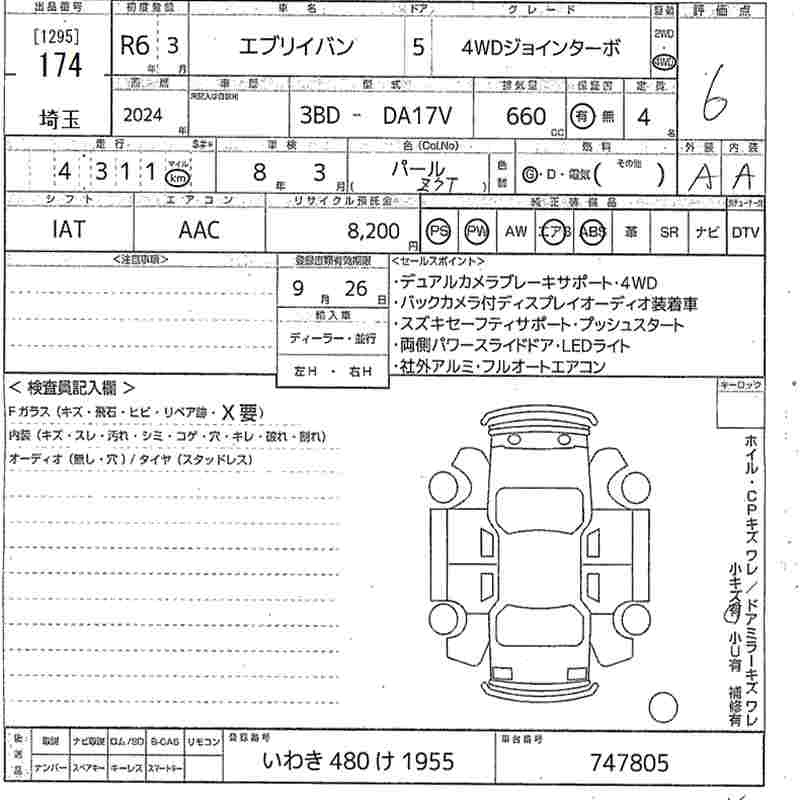 出品番号 初度登録 車名 ドア グレード 評価点
[1295]
174
埼玉
R6 年 3 月 エブリイバン 5 4WDジョインターボ 2WD 4WD 6
車歴 型式 排気量 保証書 定員
2024 年 3BD - DA17V 660 CC 有 無 4 名
走行 車検 色(Col.No) 色替 燃料 外装 内装
4 3 1 1 マイル km 8 年 3 月 パール ( ZVT ) G・D・電気( その他 ) A A
シフト エアコン リサイクル預託金 純正装備品
IAT AAC 8,200 円 PS PW AW エアB ABS 革 SR ナビ DTV
<注意事項> 登録書類有効期限 <セールスポイント>
9 月 26 日
・デュアルカメラブレーキサポート・4WD
・バックカメラ付ディスプレイオーディオ装着車
・スズキセーフティサポート・プッシュスタート
・両側パワースライドドア・LEDライト
・社外アルミ・フルオートエアコン
輸入車
ディーラー・並行
左H ・ 右H
< 検査員記入欄 > キーロック
Fガラス(キズ・飛石・ヒビ・リペア跡・X要)
内装(キズ・スレ・汚れ・シミ・コゲ・穴・キレ・破れ・割れ)
オーディオ(無し・穴)/タイヤ(スタッドレス)
ホイル・CPキズ ワレ/ドアミラーキズ ワレ
小キズ有 小U有 補修有
後送品 取説 ナビ取説 ロム/SD B-CAS リモコン 登録番号 車台番号
ナンバー スペアキー キーレス スマートキー いわき 480 け 1955 747805